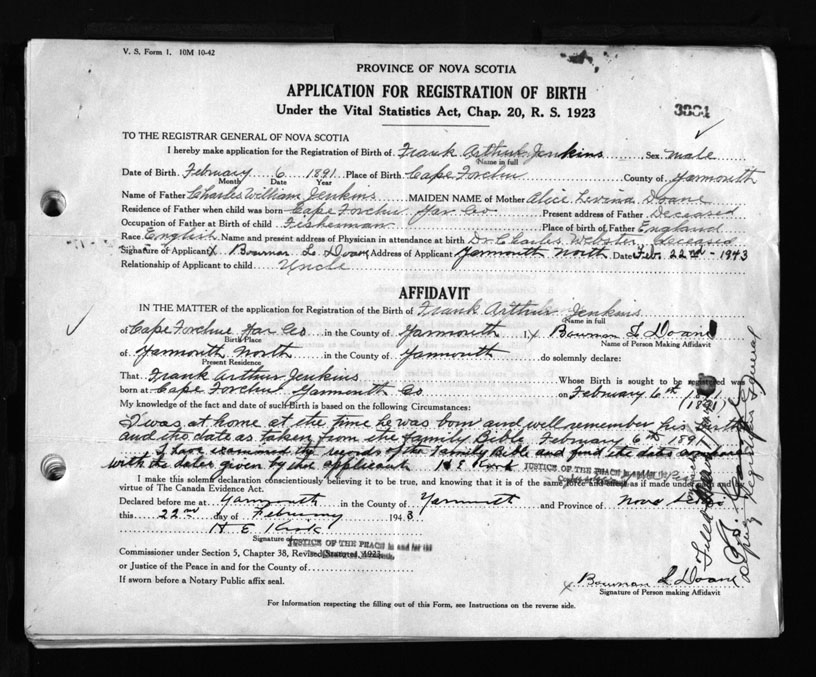 V. S. Form 1. 10M 10-42
PROVINCE OF NOVA SCOTIA
APPLICATION FOR REGISTRATION OF BIRTH
Under the Vital Statistics Act, Chap. 20, R. S. 1923
3884
TO THE REGISTRAR GENERAL OF NOVA SCOTIA
I hereby make application for the Registration of Birth of Frank Arthur Jenkins Sex Male
Name in full
Date of Birth February 6 1891 Place of Birth Cape Forchu County of Yarmouth
Month Date Year
Name of Father Charles William Jenkins MAIDEN NAME of Mother Alice Levina Doane
Residence of Father when child was born Cape Forchu Yar Co Present address of Father Deceased
Occupation of Father at Birth of child Fisherman Place of birth of Father England
Race English Name and present address of Physician in attendance at birth Dr Charles Webster, deceased
Signature of Applicant X Bowman L. Doane Address of Applicant Yarmouth North Date Feb. 22nd - 1943
Relationship of Applicant to child Uncle
AFFIDAVIT
IN THE MATTER of the application for Registration of the Birth of Frank Arthur Jenkins
Name in full
of Cape Forchue Yar Co in the County of Yarmouth I, X Bowman L Doane
Birth Place Name of Person Making Affidavit
of Yarmouth North in the County of Yarmouth do solemnly declare:
Present Residence
That Frank Arthur Jenkins Whose Birth is sought to be registered was
born at Cape Forchu Yarmouth Co on February 6th 1891
(1891)
My knowledge of the fact and date of such Birth is based on the following Circumstances:
I was at home at the time he was born and well remember his birth
and the date as taken from the Family Bible February 6th 1891
I have examined the records of the Family Bible and find the dates
with the dates given by the applicant H E Kirk JUSTICE OF THE PEACE in and for the
I make this solemn declaration conscientiously believing it to be true, and knowing that it is of the same force and effect as if made under oath and
virtue of The Canada Evidence Act.
Declared before me at Yarmouth in the County of Yarmouth and Province of Nova Scotia
this 22nd day of February 1943
H E Kirk
Signature of
JUSTICE OF THE PEACE in and for the
Commissioner under Section 5, Chapter 38, Revised Statutes, 1923
or Justice of the Peace in and for the County of
If sworn before a Notary Public affix seal.
X Bowman L Doane
Signature of Person making Affidavit
For Information respecting the filling out of this Form, see Instructions on the reverse side.
Filed
Deputy Registrar General